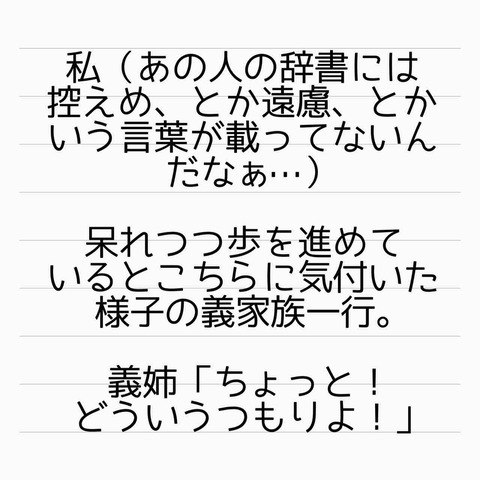 私（あの人の辞書には
控えめ、とか遠慮、とか
いう言葉が載ってないん
だなぁ…）
呆れつつ歩を進めて
いるとこちらに気付いた
様子の義家族一行。
義姉「ちょっと！
どういうつもりよ！」